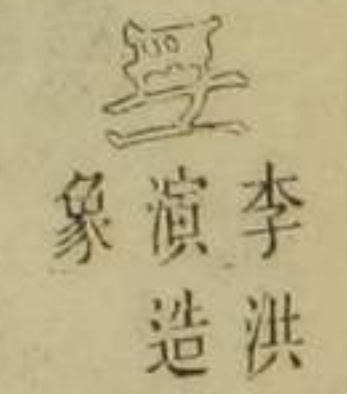 李洪
演造
象